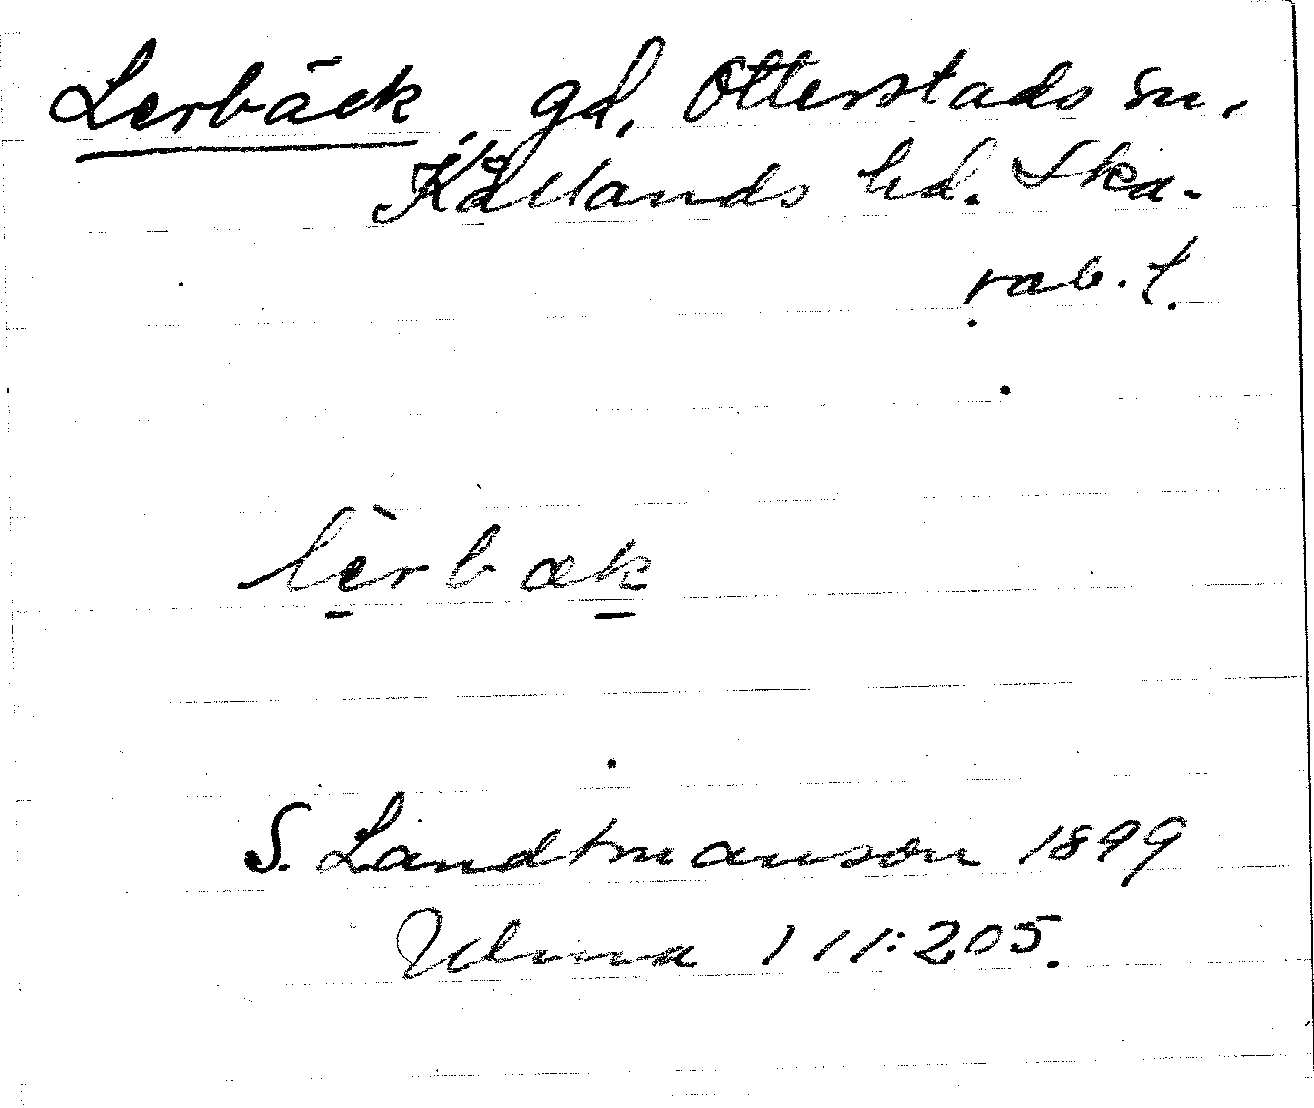 Lerbäck gd, Otterstads sn,
Kållands hd. Ska-
rab. l.
lèrbæk
S. Landtmanson 1899
Ulma 111:205.